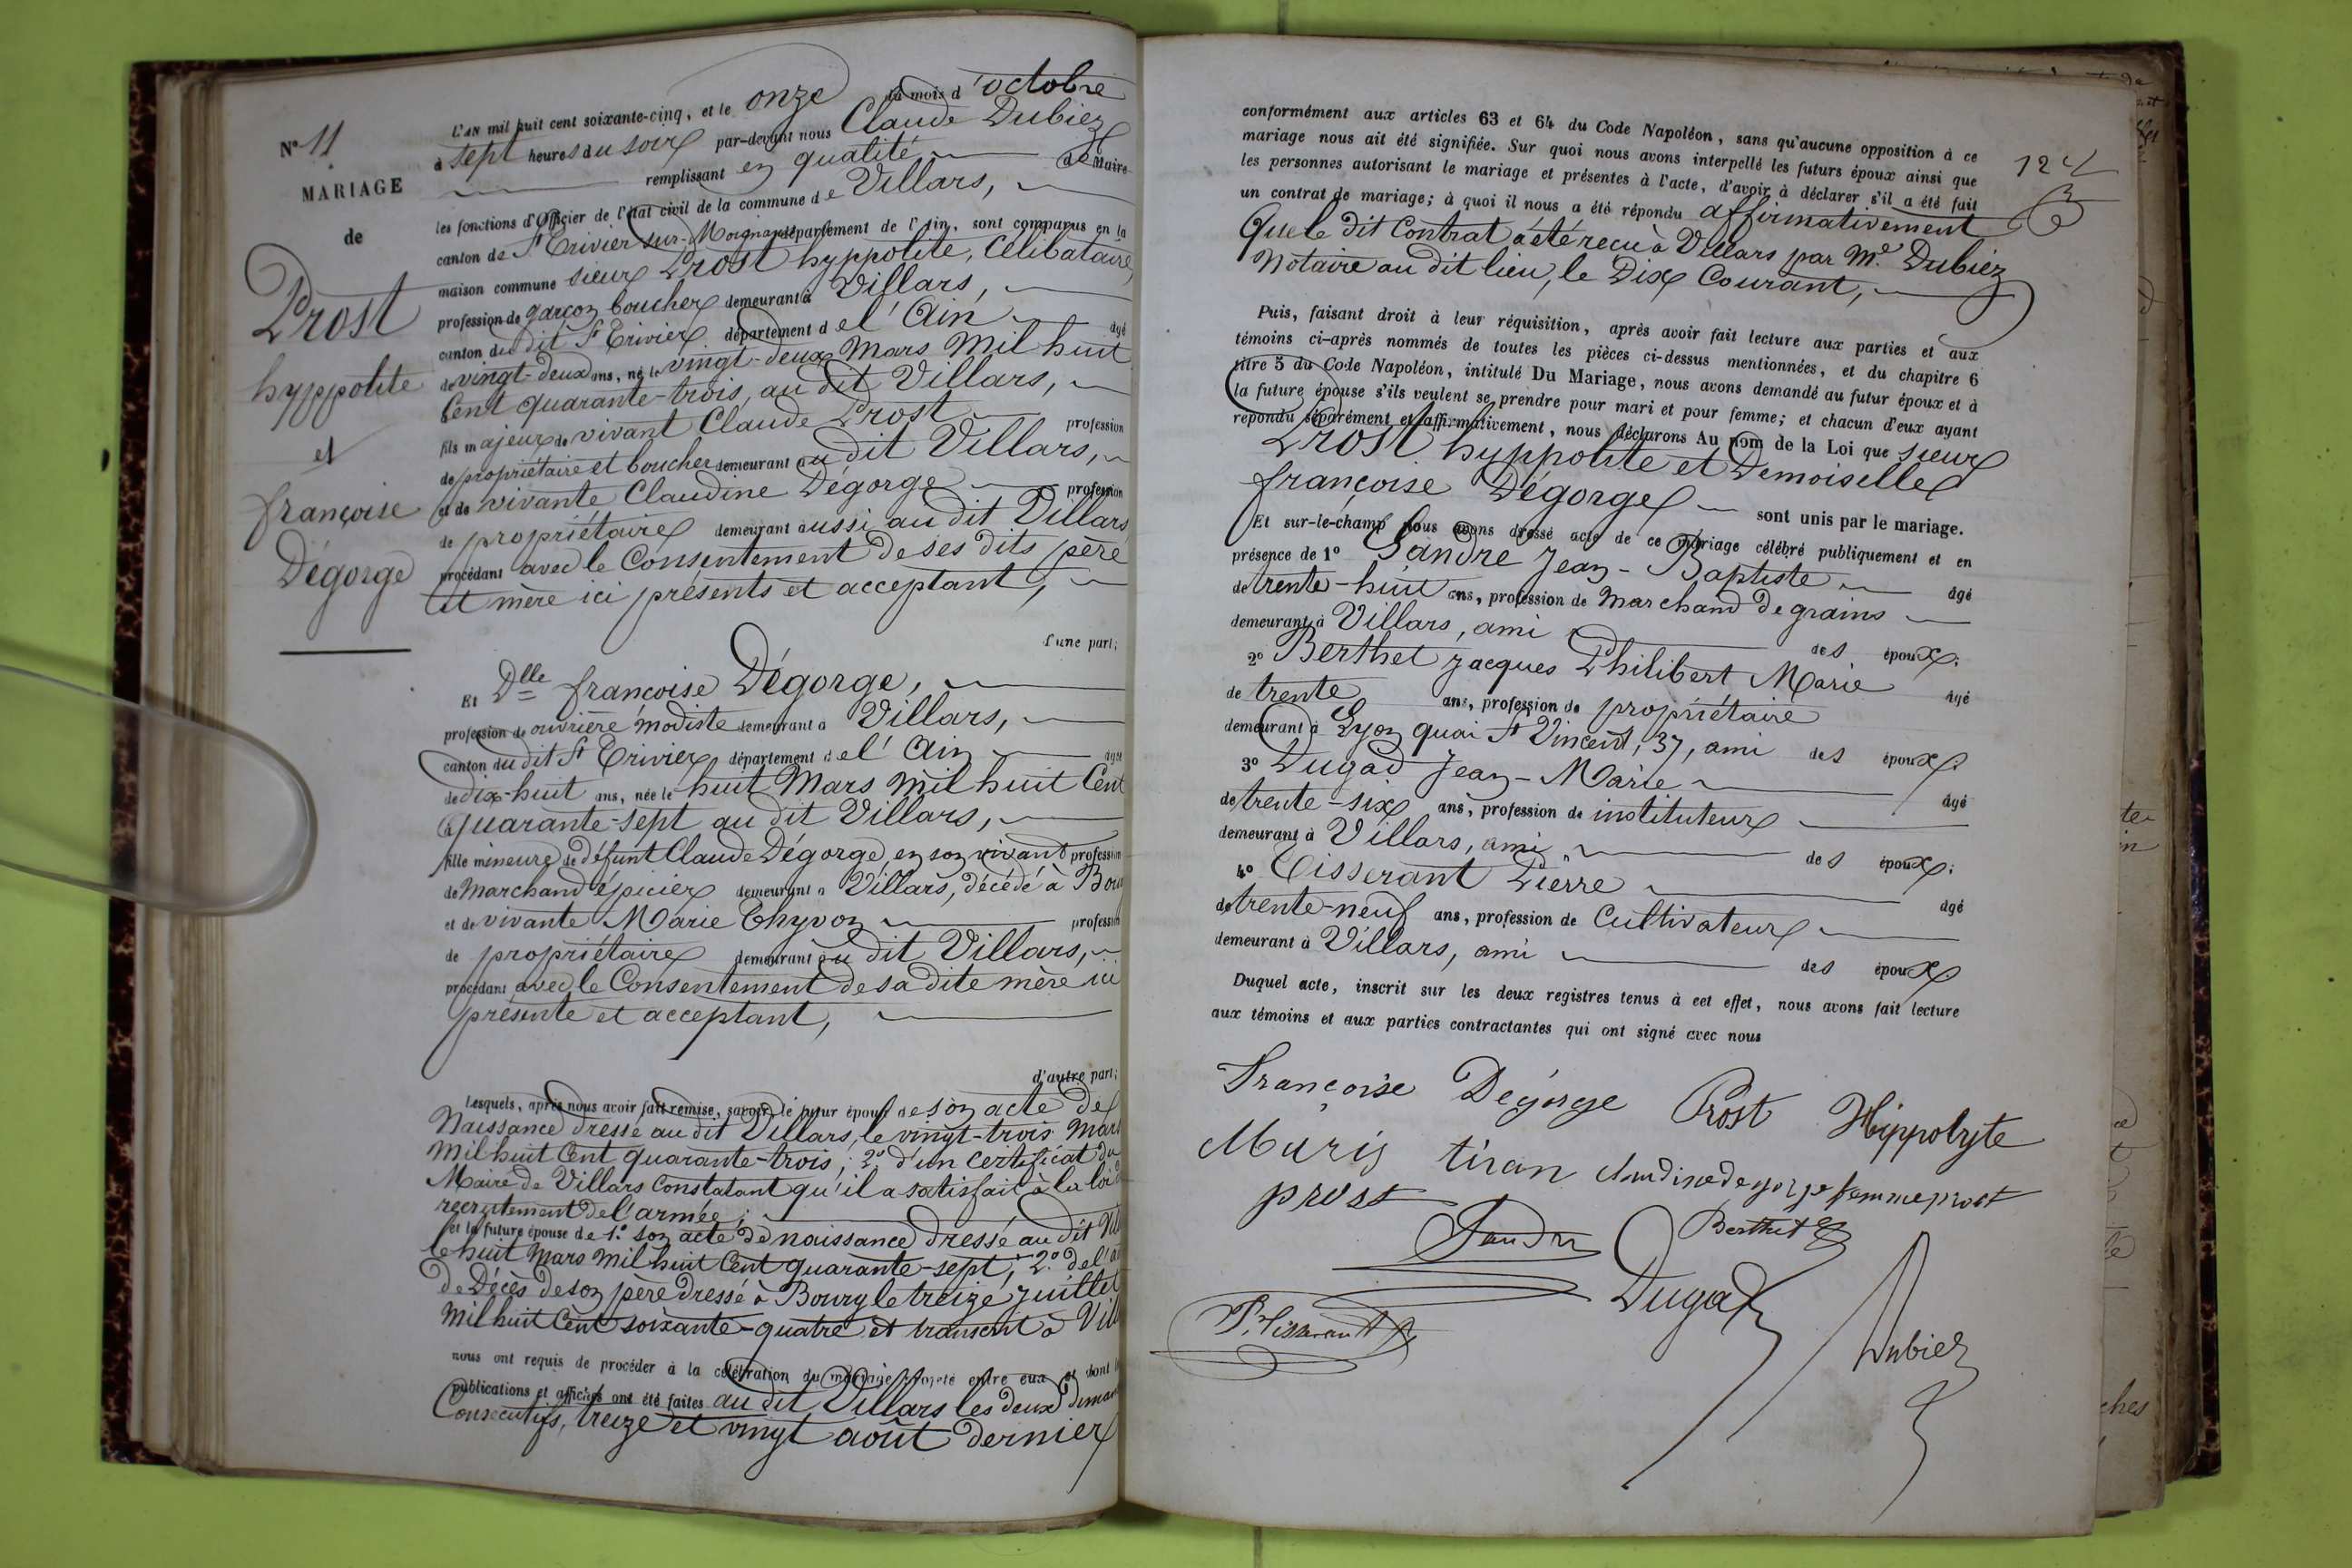 N° 11
MARIAGE
de
Prost
hyppolite
et
françoise
Dégorge
L'AN mil huit cent soixante-cinq, et le onze du mois d'octobre
à sept heures du soir par-devant nous Claude Dubiez
remplissant en qualité de Maire
les fonctions d'Officier de l'état civil de la commune de Villars,
canton de St Trivier sur-Moignans département de l'Ain, sont comparus en la
maison commune sieur Prost hyppolite, Célibataire,
profession de garçon boucher demeurant à Villars,
canton du dit St Trivier département de l'Ain âgé
de vingt-deux ans, né le vingt-deux Mars Mil huit
Cent quarante-trois, au dit Villars,
fils majeur de vivant Claude Prost profession
de propriétaire et boucher demeurant au dit Villars,
et de vivante Claudine Dégorge profession
de propriétaire demeurant aussi au dit Villars
procédant avec le Consentement de ses dits père
et mère ici présents et acceptant,
d'une part;
Et Dlle françoise Dégorge,
profession de ouvrière modiste demeurant à Villars,
canton du dit St Trivier département de l'Ain âgée
de dix-huit ans, née le huit Mars mil huit Cent
quarante-sept au dit Villars,
fille mineure de défunt Claude Dégorge, en son vivant profession
de Marchand épicier demeurant à Villars, décédé à Bour
et de vivante Marie Thyvon profession
de propriétaire demeurant au dit Villars,
procédant avec le Consentement de sa dite mère ici
présente et acceptant,
d'autre part;
Lesquels, après nous avoir fait remise, savoir: le futur époux de son acte de
Naissance dressé au dit Villars, le vingt-trois Mars
Mil huit Cent quarante-trois; 2° d'un certificat du
Maire de Villars Constatant qu'il a satisfait à la loi
recrutement de l'armée;
et la future épouse de 1.° son acte de naissance dressé au dit Vill
le huit Mars Mil huit Cent quarante-sept; 2.° de l'a
de Décès de son père dressé à Bourg le treize juillet
Mil huit Cent soixante-quatre et transcrit à Vill
nous ont requis de procéder à la célébration du mariage projeté entre eux et dont
publications et affiches ont été faites au dit Villars les deux diman
Consécutifs, treize et vingt août dernier
conformément aux articles 63 et 64 du Code Napoléon, sans qu'aucune opposition à ce
mariage nous ait été signifiée. Sur quoi nous avons interpellé les futurs époux ainsi que
les personnes autorisant le mariage et présentes à l'acte, d'avoir à déclarer s'il a été fait
un contrat de mariage; à quoi il nous a été répondu affirmativement
Que le dit Contrat a été reçu à Villars par Me. Dubiez
Notaire au dit lieu, le Dix Courant,
Puis, faisant droit à leur réquisition, après avoir fait lecture aux parties et aux
témoins ci-après nommés de toutes les pièces ci-dessus mentionnées, et du chapitre 6
titre 5 du Code Napoléon, intitulé Du Mariage, nous avons demandé au futur époux et à
la future épouse s'ils veulent se prendre pour mari et pour femme; et chacun d'eux ayant
répondu séparément et affirmativement, nous déclarons Au nom de la Loi que sieur
Prost hyppolite et Demoiselle
françoise Dégorge sont unis par le mariage.
Et sur-le-champ nous avons dressé acte de ce mariage célébré publiquement et en
présence de 1° Sandre Jean-Baptiste âgé
de trente-huit ans, profession de Marchand de grains
demeurant à Villars, ami des époux;
2° Berthet Jacques Philibert Marie âgé
de trente ans, profession de propriétaire
demeurant à Lyon quai St Vincent, 37, ami des époux;
3° Dugad Jean-Marie âgé
de trente-six ans, profession de instituteur
demeurant à Villars, ami des époux;
4° Tisserant Pierre âgé
de trente-neuf ans, profession de Cultivateur
demeurant à Villars, ami des époux
Duquel acte, inscrit sur les deux registres tenus à cet effet, nous avons fait lecture
aux témoins et aux parties contractantes qui ont signé avec nous
Françoise Dégorge Prost Hippolyte
Muris tivan claudine degorge femme prost
prost
Sandre Berthet
Dugad
P. Tisserant
Dubiez